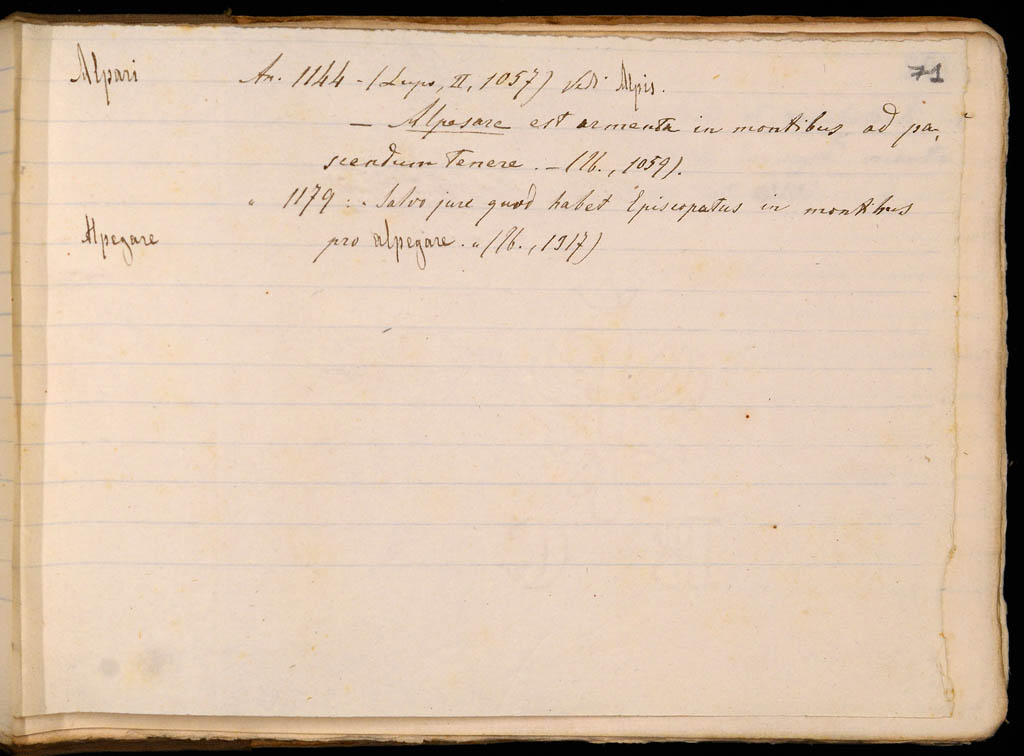 71
Alpari An. 1144 - (Lupo, II, 1057) Vedi Alpis.
— Alpesare est armenta in montibus ad pa-
scendum tenere. - (Ib., 1059).
" 1179 : " Salvo jure quod habet Episcopatus in montibus
Alpegare pro alpegare. " (Ib., 1317)